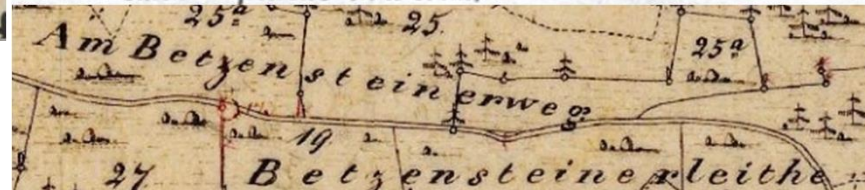 25a
25.
Am Betzensteinerweg
25a
19
27
Betzensteinerleithe